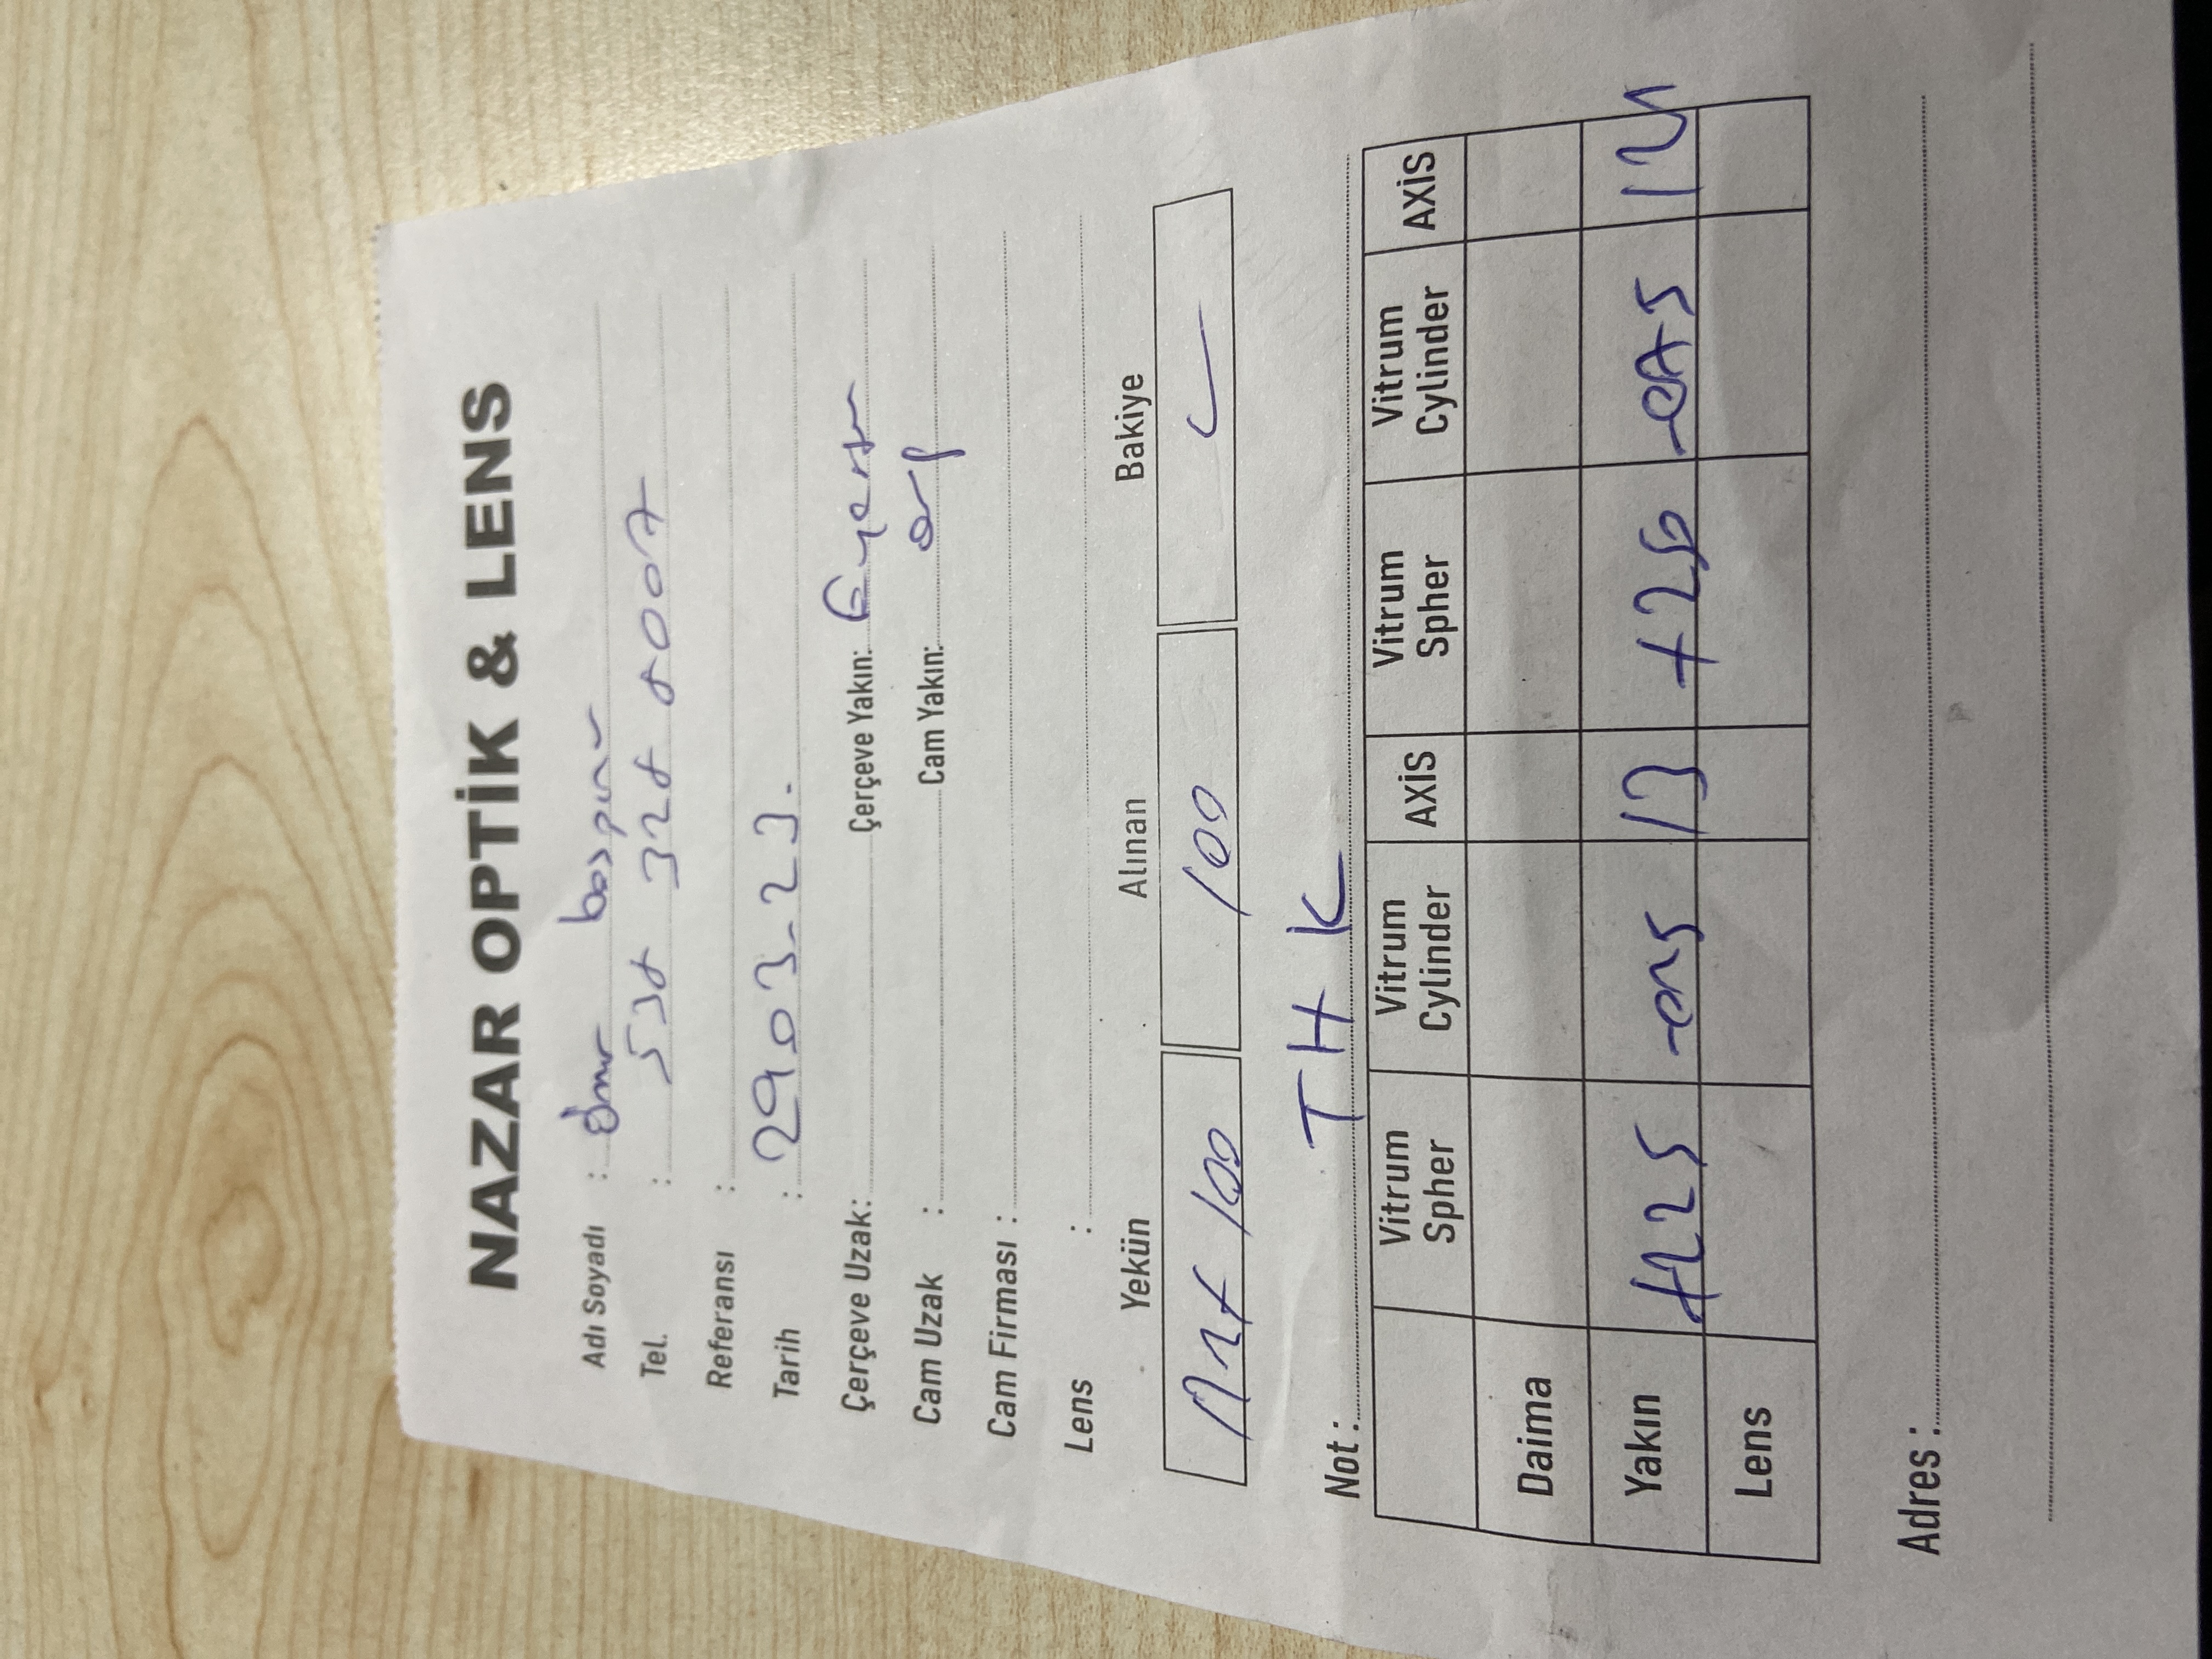 NAZAR OPTİK & LENS
Adı Soyadı :
Tel. : 538 328 8007
Referansı :
Tarih : 2903.23.
Çerçeve Uzak: Çerçeve Yakın:
Cam Uzak : Cam Yakın:
Cam Firması :
Lens :
Yekün Alınan Bakiye
100 100
Not : THK
Vitrum Spher Vitrum Cylinder AXİS Vitrum Spher Vitrum Cylinder AXİS
Daima
Yakın +225 13 +250 -075
Lens
Adres :